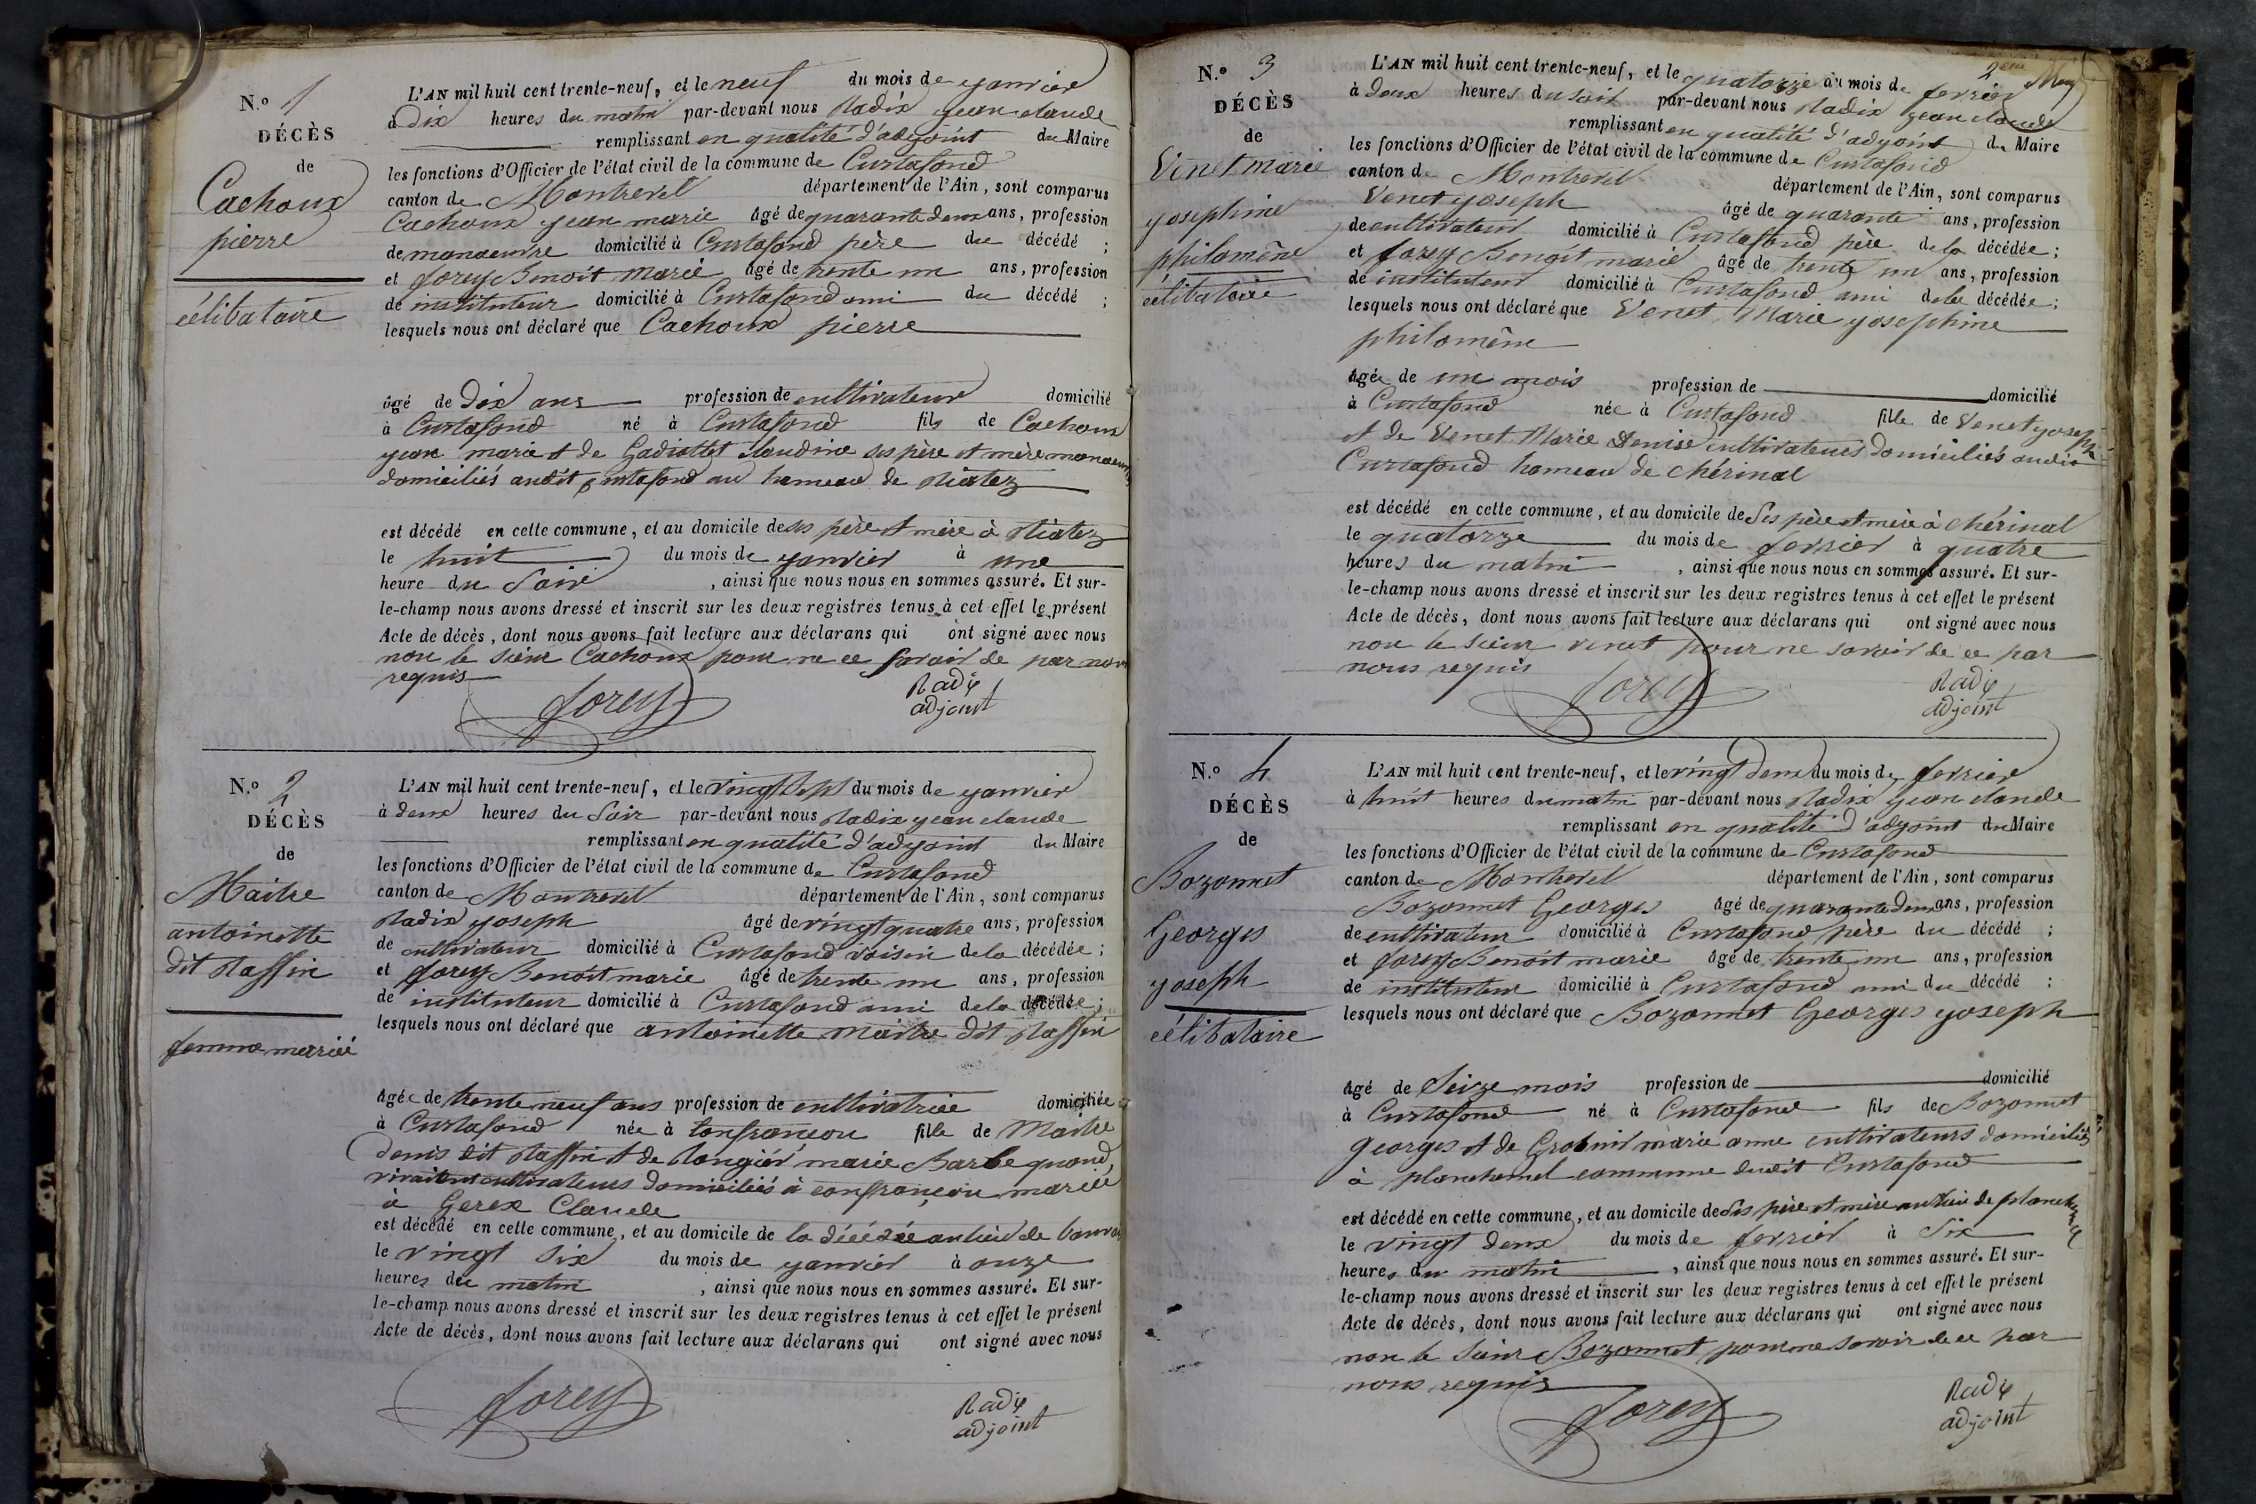 N.º 1
DÉCÈS
de
Cachoux
pierre
célibataire
L'AN mil huit cent trente-neuf, et le neuf du mois de janvier
à dix heures du matin par-devant nous Radix jean claude
remplissant en qualité d'adjoint du Maire
les fonctions d'Officier de l'état civil de la commune de Curtafond
canton de Montrevel département de l'Ain, sont comparus
Cachoux jean marie âgé de quarante deux ans, profession
de manoeuvre domicilié à Curtafond père du décédé ;
et forey Benoit marie âgé de trente un ans, profession
de instituteur domicilié à Curtafond ami du décédé ;
lesquels nous ont déclaré que Cachoux pierre
âgé de dix ans profession de cultivateur domicilié
à Curtafond né à Curtafond fils de Cachoux
jean marie et de Gadiollet Claudine ses père et mère manoeuvres
domiciliés audit Curtafond au hameau de
est décédé en cette commune, et au domicile de ses père et mère à
le huit du mois de janvier à une
heure du Soir, ainsi que nous nous en sommes assuré. Et sur-
le-champ nous avons dressé et inscrit sur les deux registres tenus à cet effet le présent
Acte de décès, dont nous avons fait lecture aux déclarans qui ont signé avec nous
non le sieur Cachoux pour ne savoir de ce par nous
requis
forey
Radix
adjoint
N.º 2
DÉCÈS
de
Maitre
antoinette
dit Raffin
femme mariée
L'AN mil huit cent trente-neuf, et le vingt sept du mois de janvier
à deux heures du Soir par-devant nous Radix jean claude
remplissant en qualité d'adjoint du Maire
les fonctions d'Officier de l'état civil de la commune de Curtafond
canton de Montrevel département de l'Ain, sont comparus
Radix joseph âgé de vingt quatre ans, profession
de cultivateur domicilié à Curtafond voisin de la décédée ;
et forey Benoit marie âgé de trente un ans, profession
de instituteur domicilié à Curtafond ami de la décédée ;
lesquels nous ont déclaré que antoinette Maitre dit Raffin
âgée de trente neuf ans profession de cultivatrice domiciliée
à Curtafond née à Confrançon fille de Maitre
denis dit Raffin et de marie Barbe quand
vivaient cultivateurs domiciliés à confrançon mariée
à Gerex Claude
est décédé en cette commune, et au domicile de la décédée au lieu de
le vingt six du mois de janvier à onze
heures du matin, ainsi que nous nous en sommes assuré. Et sur-
le-champ nous avons dressé et inscrit sur les deux registres tenus à cet effet le présent
Acte de décès, dont nous avons fait lecture aux déclarans qui ont signé avec nous
forey
Radix
adjoint
2eme
N.º 3
DÉCÈS
de
Venet marie
josephine
philomène
célibataire
L'AN mil huit cent trente-neuf, et le quatorze du mois de fevrier
à deux heures du soir par-devant nous Radix jean claude
remplissant en qualité d'adjoint du Maire
les fonctions d'Officier de l'état civil de la commune de Curtafond
canton de Montrevel département de l'Ain, sont comparus
Venet joseph âgé de quarante ans, profession
de cultivateur domicilié à Curtafond père de la décédée ;
et forey Benoit marie âgé de trente un ans, profession
de instituteur domicilié à Curtafond ami de la décédée ;
lesquels nous ont déclaré que Venet Marie josephine
philomène
âgée de un mois profession de domicilié
à Curtafond née à Curtafond fille de Venet joseph
et de Venet Marie Denise cultivateurs domiciliés audit
Curtafond hameau de chérinal
est décédé en cette commune, et au domicile de Ses père et mère à chérinal
le quatorze du mois de fevrier à quatre
heures du matin, ainsi que nous nous en sommes assuré. Et sur-
le-champ nous avons dressé et inscrit sur les deux registres tenus à cet effet le présent
Acte de décès, dont nous avons fait lecture aux déclarans qui ont signé avec nous
non le sieur venet pour ne savoir de ce par
nous requis
forey
Radix
adjoint
N.º 4
DÉCÈS
de
Bozonnet
Georges
joseph
célibataire
L'AN mil huit cent trente-neuf, et le vingt deux du mois de fevrier
à huit heures du matin par-devant nous Radix jean claude
remplissant en qualité d'adjoint du Maire
les fonctions d'Officier de l'état civil de la commune de Curtafond
canton de Montrevel département de l'Ain, sont comparus
Bozonnet Georges âgé de quarante deux ans, profession
de cultivateur domicilié à Curtafond père du décédé ;
et forey Benoit marie âgé de trente un ans, profession
de instituteur domicilié à Curtafond ami du décédé ;
lesquels nous ont déclaré que Bozonnet Georges joseph
âgé de Seize mois profession de domicilié
à Curtafond né à Curtafond fils de Bozonnet
georges et de marie anne cultivateurs domiciliés
à planchemel commune dudit Curtafond
est décédé en cette commune, et au domicile de Ses père et mère au lieu de planchemel
le vingt deux du mois de fevrier à Six
heures du matin, ainsi que nous nous en sommes assuré. Et sur-
le-champ nous avons dressé et inscrit sur les deux registres tenus à cet effet le présent
Acte de décès, dont nous avons fait lecture aux déclarans qui ont signé avec nous
non le Sieur Bozonnet pour ne savoir de ce par
nous requis
forey
Radix
adjoint